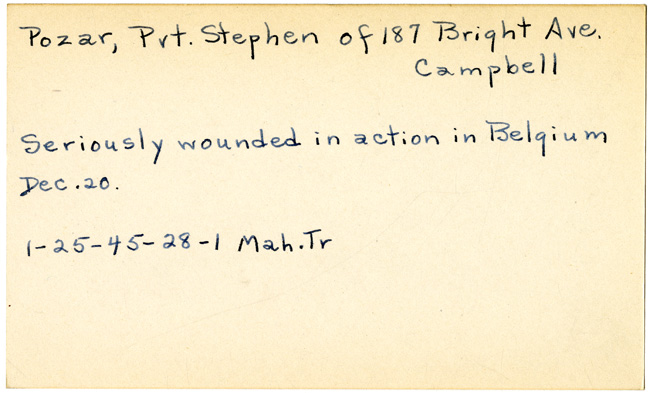 Pozar, Pvt. Stephen of 187 Bright Ave.
Campbell
Seriously wounded in action in Belgium
Dec. 20.
1-25-45-28-1 Mah. Tr